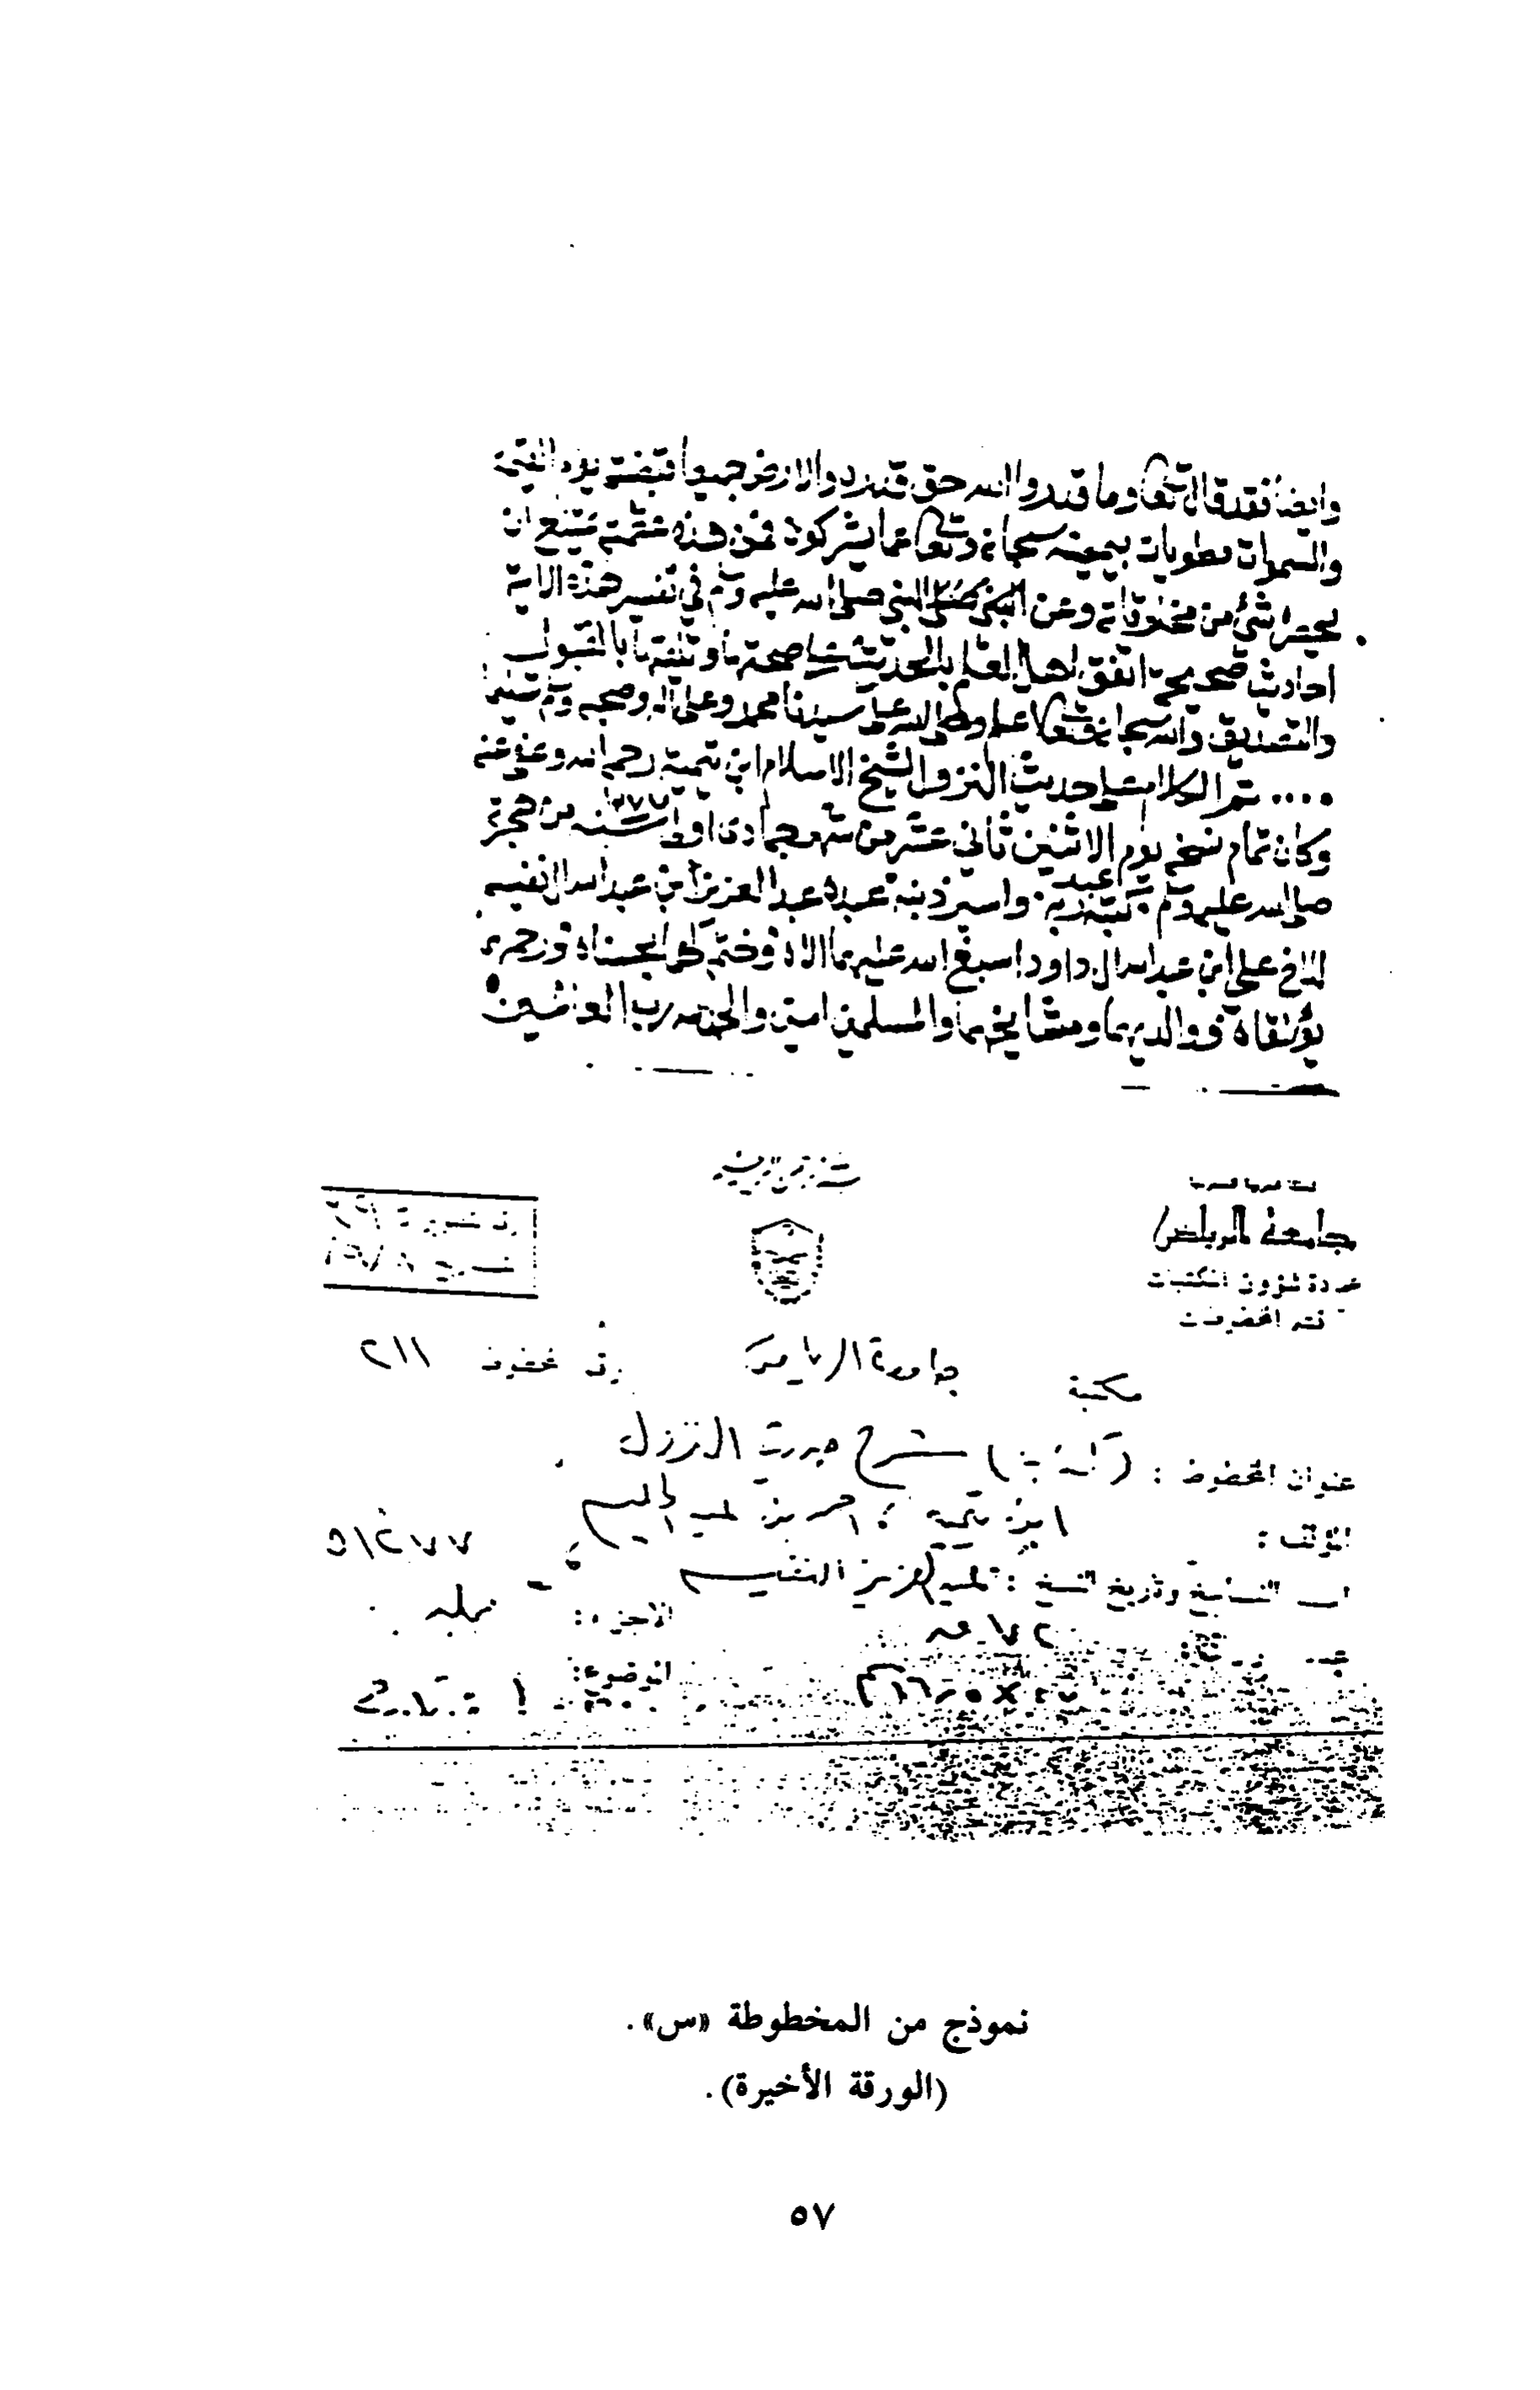 وايضا فقد قال تعالى وما قدروا الله حق قدره والارض جميعا قبضته يوم القيمة
والسموات مطويات بيمينه سبحانه وتعالى عما يشركون فمن هذه عظمته يمتنع ان
يحصره شئ من مخلوقاته وعن النبي صلى الله عليه وسلم في تفسير هذه الاية
احاديث صحيحة اتفق اهل العلم بالحديث على صحتها وتلقيها بالقبول
والتصديق والله سبحانه وتعالى اعلم وصلى الله على سيدنا محمد وعلى اله وصحبه وسلم تسليما
.... تم الكلام على حديث النزول لشيخ الاسلام ابن تيمية رحمه الله وعفى عنه
وكان تمام نسخه يوم الاثنين ثاني عشر من شهر جمادى اول سنة من هجرته
صلى الله عليه وسلم كتبه عبد ربه واسير ذنبه عبده عبد العزيز ابن عبد الله النفيسه
للاخ علي ابن عبد الله ال داود اسبغ الله عليهما الاه وختم لهم
ووالديهما ومشايخهما والمسلمين امين والحمد لله رب العالمين
جامعة الرياض
عمادة شؤون المكتبات
قسم المخطوطات
مكتبة جامعة الرياض رقم المخطوط ٢١١
عنوان المخطوط : ( كتاب ) شرح حديث النزول
المؤلف : ابن تيمية ، احمد بن عبد الحليم
٥١٢٧٧
اسم الناسخ وتاريخ النسخ : عبد العزيز النفيسه
عدد الاوراق: ٧٢ الاجزاء:
الموضوع:
نموذج من المخطوطة «س».
(الورقة الأخيرة).
٥٧